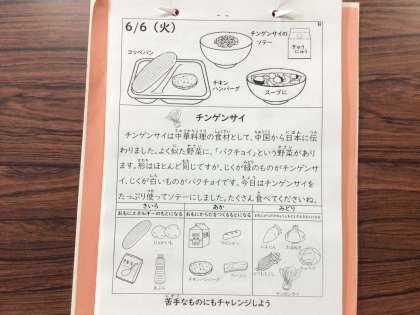 6/6（火）
コッペパン
チンゲンサイの
ソテー
ぎゅう
にゅう
チキン
ハンバーグ
スープに
チンゲンサイ
チンゲンサイは中華料理の食材として、中国から日本に伝
わりました。よく似た野菜に、「パクチョイ」という野菜があり
ます。形はほとんど同じですが、じくが緑のものがチンゲンサ
イ、じくが白いものがパクチョイです。今日はチンゲンサイを
たっぷり使ってソテーにしました。たくさん食べてくださいね。
きいろ
あか
みどり
おもにエネルギーのもとになる
おもにからだをつくるもとになる
じゃがいも
あぶら
ウインナー
チキンハンバーグ
ベーコン
にんじん
たまねぎ
とうもろこし
チンゲンサイ
苦手なものにもチャレンジしよう